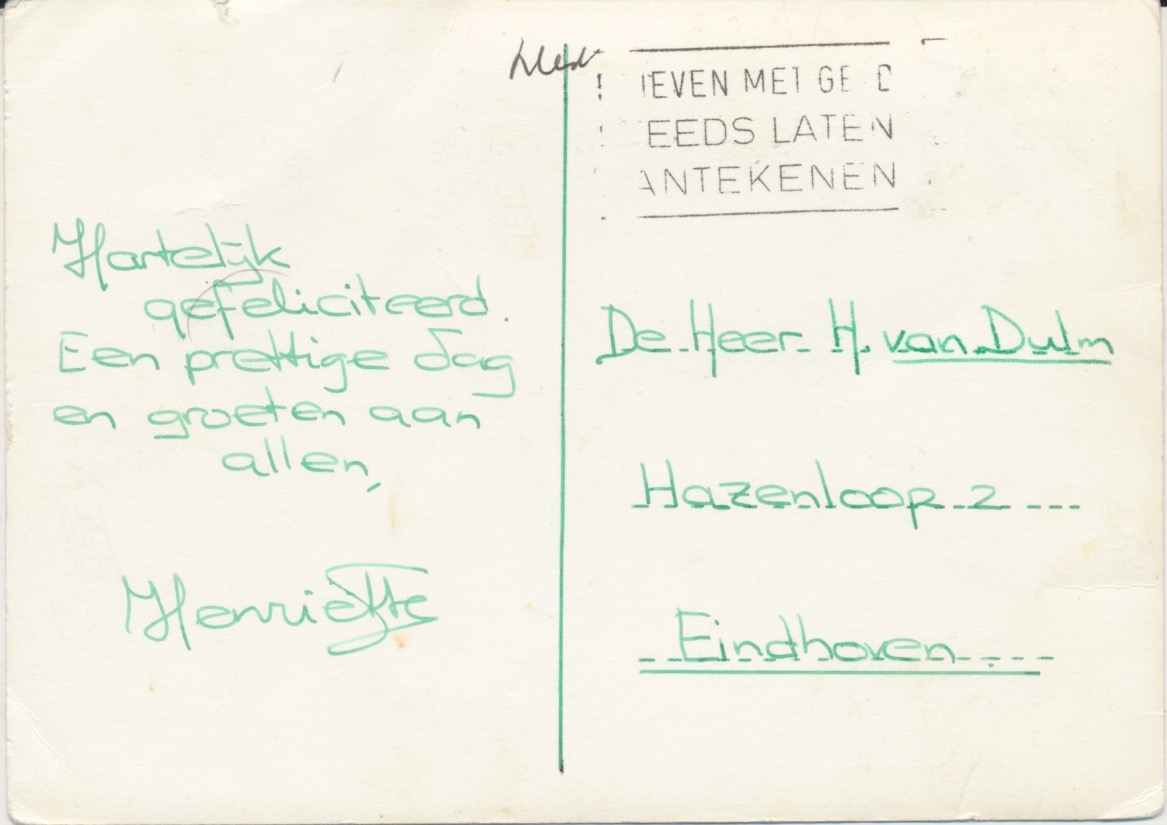 Hartelijk
gefeliciteerd.
Een prettige dag
en groeten aan
allen,
Henriëtte
IEVEN MET GE D
EEDS LATEN
ANTEKENEN
De Heer H. van Dulm
Hazenloop 2
Eindhoven